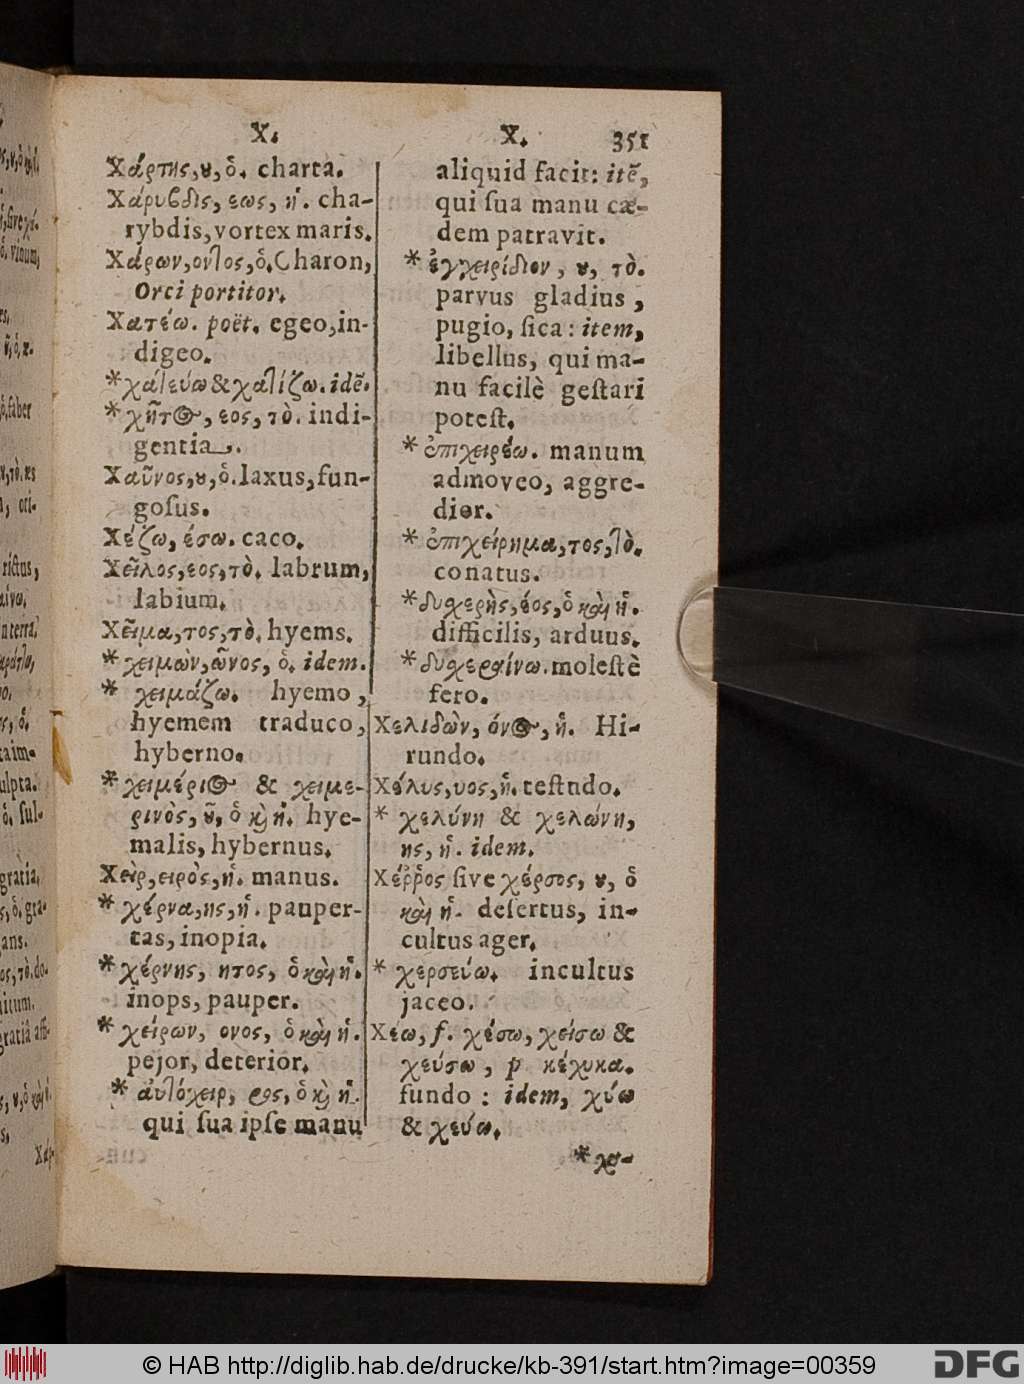 X.
Χάρτης, ȣ, ὁ. charta.
Χάρυϐδις, εως, ἡ. cha-
rybdis, vortex maris.
Χάρων, οντος, ὁ. Charon,
Orci portitor.
Χατέω. poët. egeo, in-
digeo.
* χατεύω & χατίζω. idẽ.
* χῆτος, εος, τὸ. indi-
gentia.
Χαῦνος, ȣ, ὁ. laxus, fun-
gosus.
Χέζω, έσω. caco.
Χεῖλος, εος, τὸ. labrum,
labium.
Χεῖμα, τος, τὸ. hyems.
* χειμὼν, ῶνος, ὁ. idem.
* χειμάζω. hyemo,
hyemem traduco,
hyberno.
* χειμέριος & χειμε-
ρινὸς, ȣ͂, ὁ κ̀ ἡ. hye-
malis, hybernus.
Χεὶρ, ειρὸς, ἡ. manus.
* χέρνα, ης, ἡ. pauper-
tas, inopia.
* χέρνης, ητος, ὁ καὶ ἡ.
inops, pauper.
* χείρων, ονος, ὁ καὶ ἡ.
pejor, deterior.
* αὐτόχειρ, ρος, ὁ κ̀ ἡ.
qui ſua ipſe manu
X. 351
aliquid facit: itẽ,
qui ſua manu cæ-
dem patravit.
* ἐγχειρίδιον, ȣ, τὸ.
parvus gladius,
pugio, ſica: item,
libellus, qui ma-
nu facilè geſtari
poteſt.
* ἐπιχειρέω. manum
admoveo, aggre-
dior.
* ἐπιχείρημα, τος, τὸ.
conatus.
* δυχερὴς, έος, ὁ καὶ ἡ.
difficilis, arduus.
* δυχεραίνω. moleſtè
fero.
Χελιδὼν, όνος, ἡ. Hi-
rundo.
Χέλυς, υος, ἡ. teſtudo.
* χελύνη & χελώνη,
ης, ἡ. idem.
Χέῤῥος ſive χέρσος, ȣ, ὁ
καὶ ἡ. deſertus, in-
cultus ager.
* χερσεύω. incultus
jaceo.
Χέω, f. χέσω, χείσω &
χεύσω, p κέχυκα.
fundo: idem, χύω
& χεύω.
* χο-
© HAB http://diglib.hab.de/drucke/kb-391/start.htm?image=00359
DFG